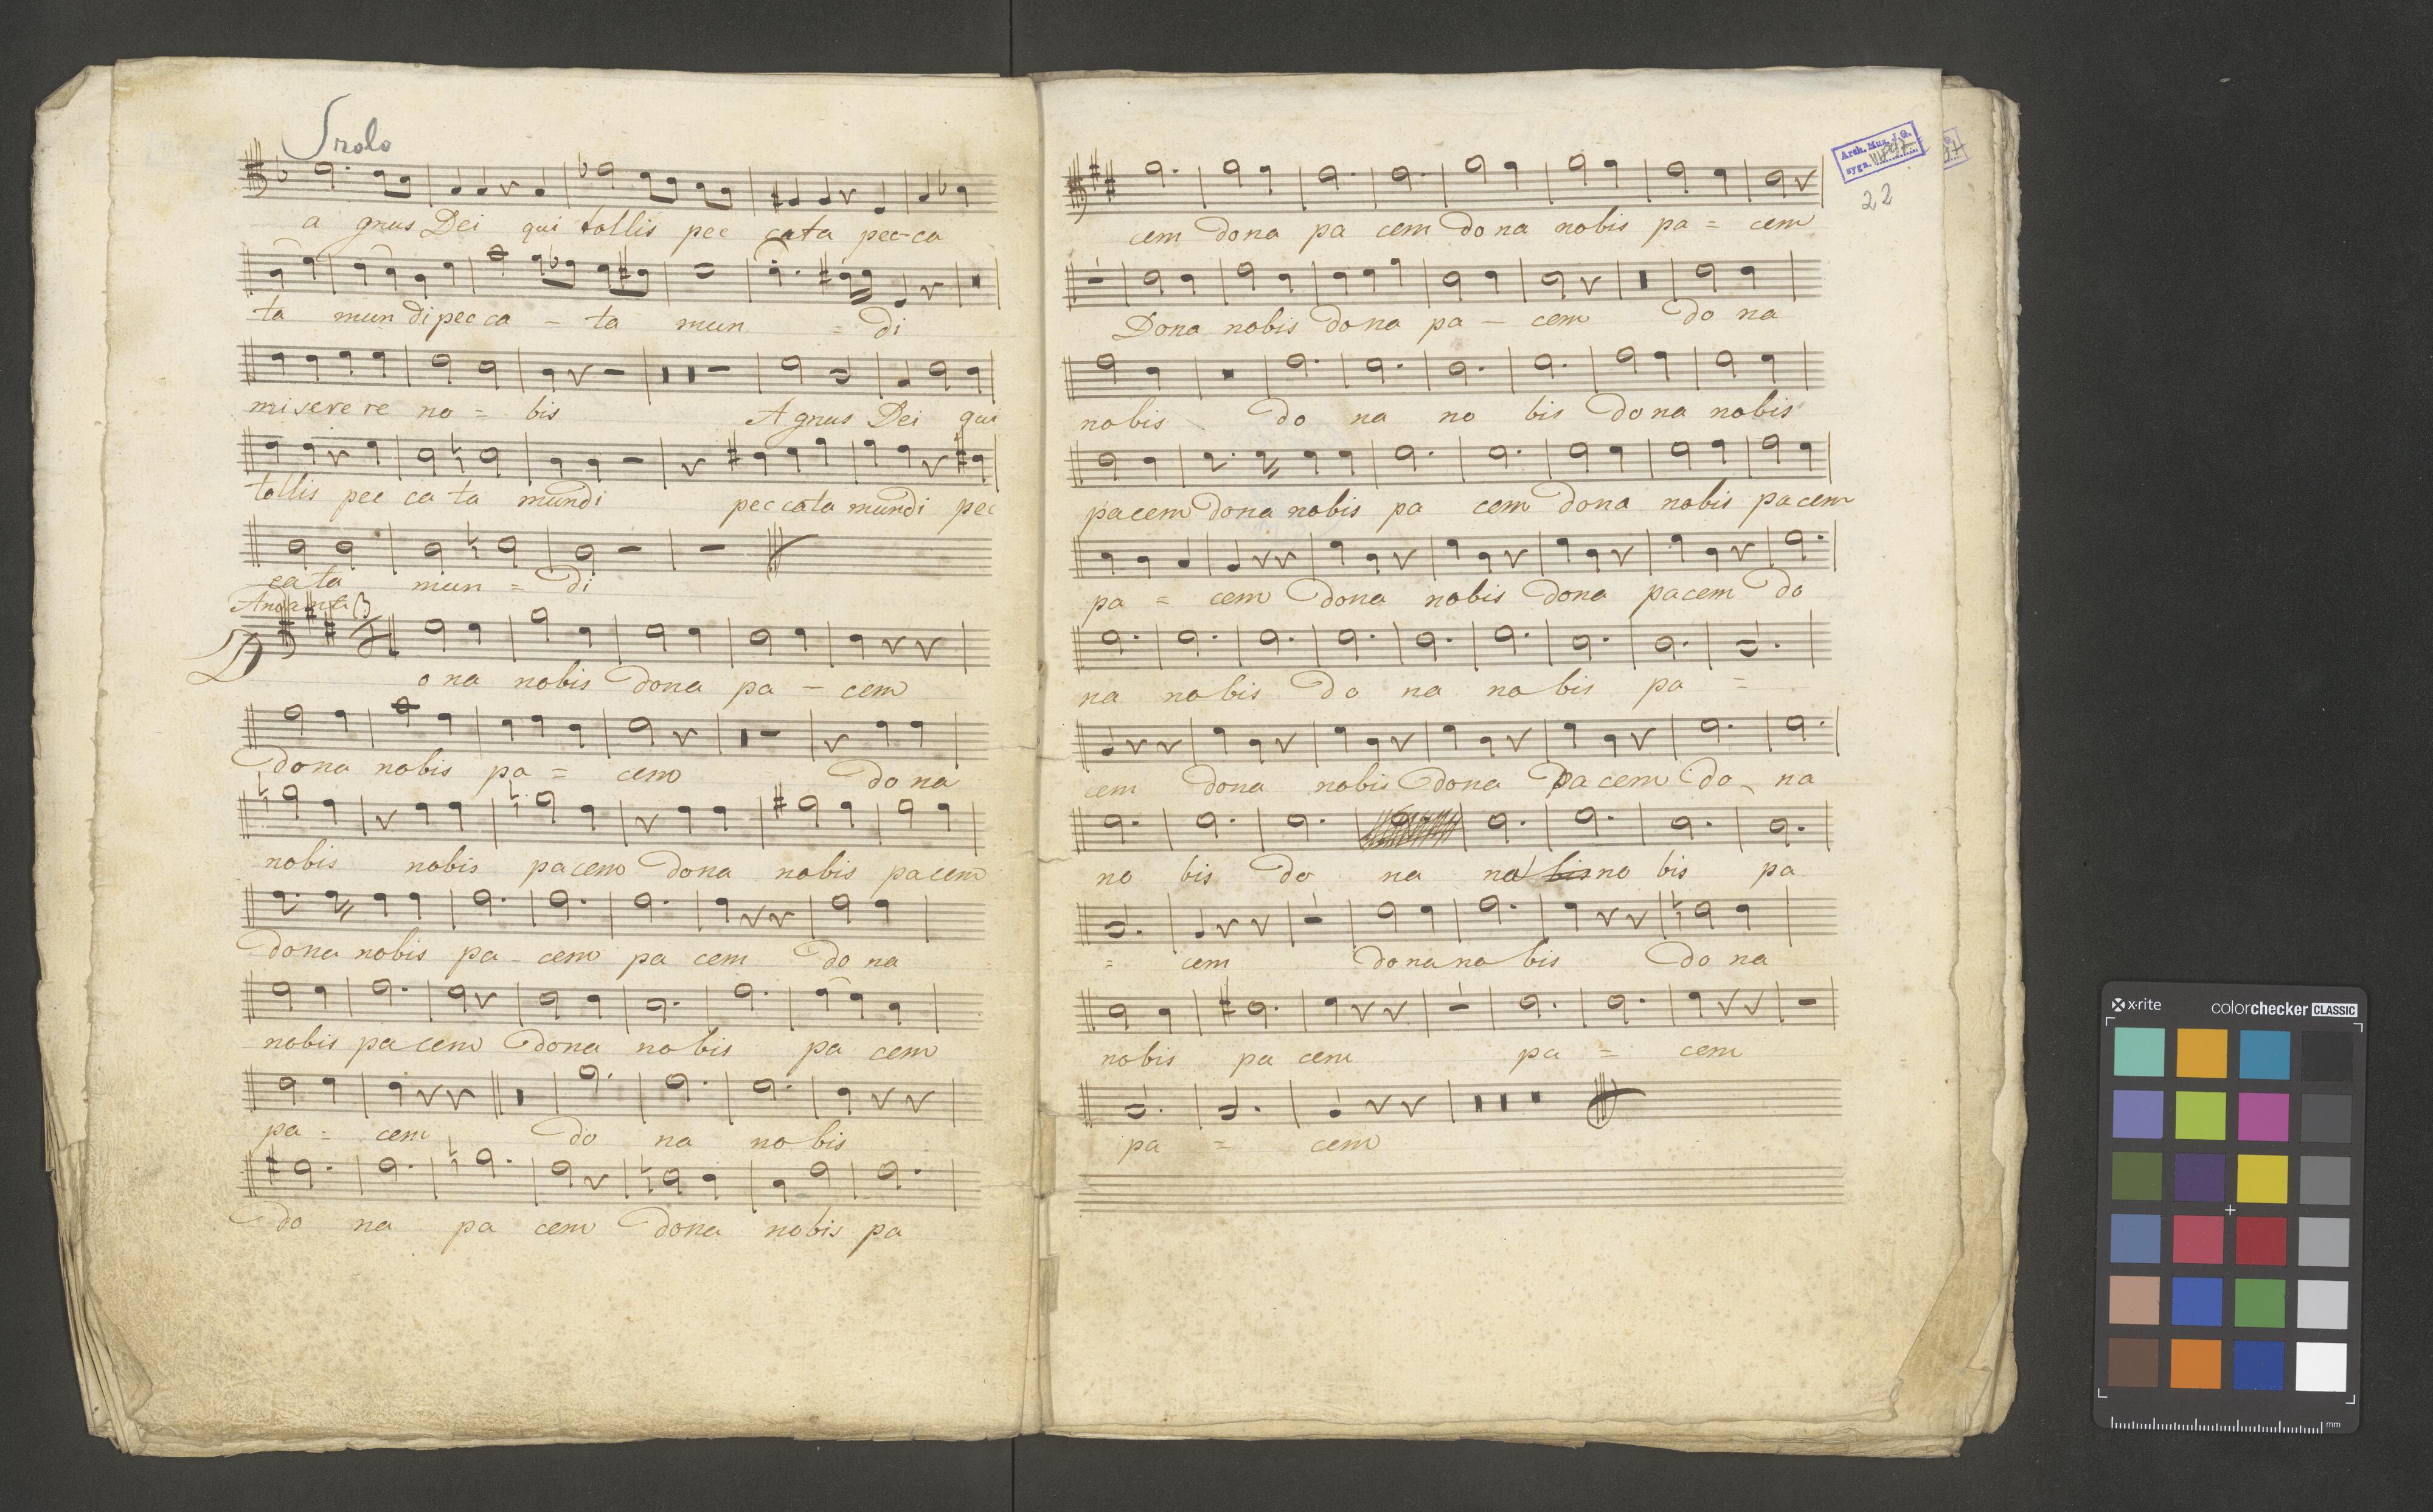 Srolo
a gnus Dei qui tollis pec cata pec-ca
ta mun di pec ca - ta mun = di
mi sere re no = bis A gnus Dei qui
tollis pec ca ta mundi pec cata mundi pec
ca ta mun = di
Andante 3
D o na nobis dona pa - cem
dona nobis pa = cem do na
nobis nobis pacem dona nobis pacem
dona nobis pa - cem pa cem do na
nobis pa cem dona no bis pa cem
pa = cem do na no bis
do na pa cem dona nobis pa
Arch. Muz. J. G.
sygn.
22
cem do na pa cem do na nobis pa = cem
Dona nobis dona pa - cem do na
nobis do na no bis do na nobis
pacem dona nobis pa cem dona nobis pacem
pa = cem dona nobis dona pacem do
na no bis do na no bis pa =
cem dona nobis dona pa cem do na
no bis do na no bis no bis pa
= cem do na no bis do na
nobis pa cem pa = cem
pa = cem
x-rite
colorchecker CLASSIC
mm